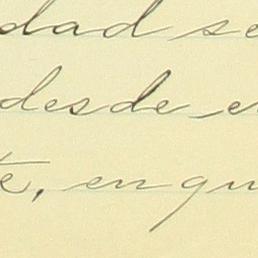 dad se
desde e
te, en qu